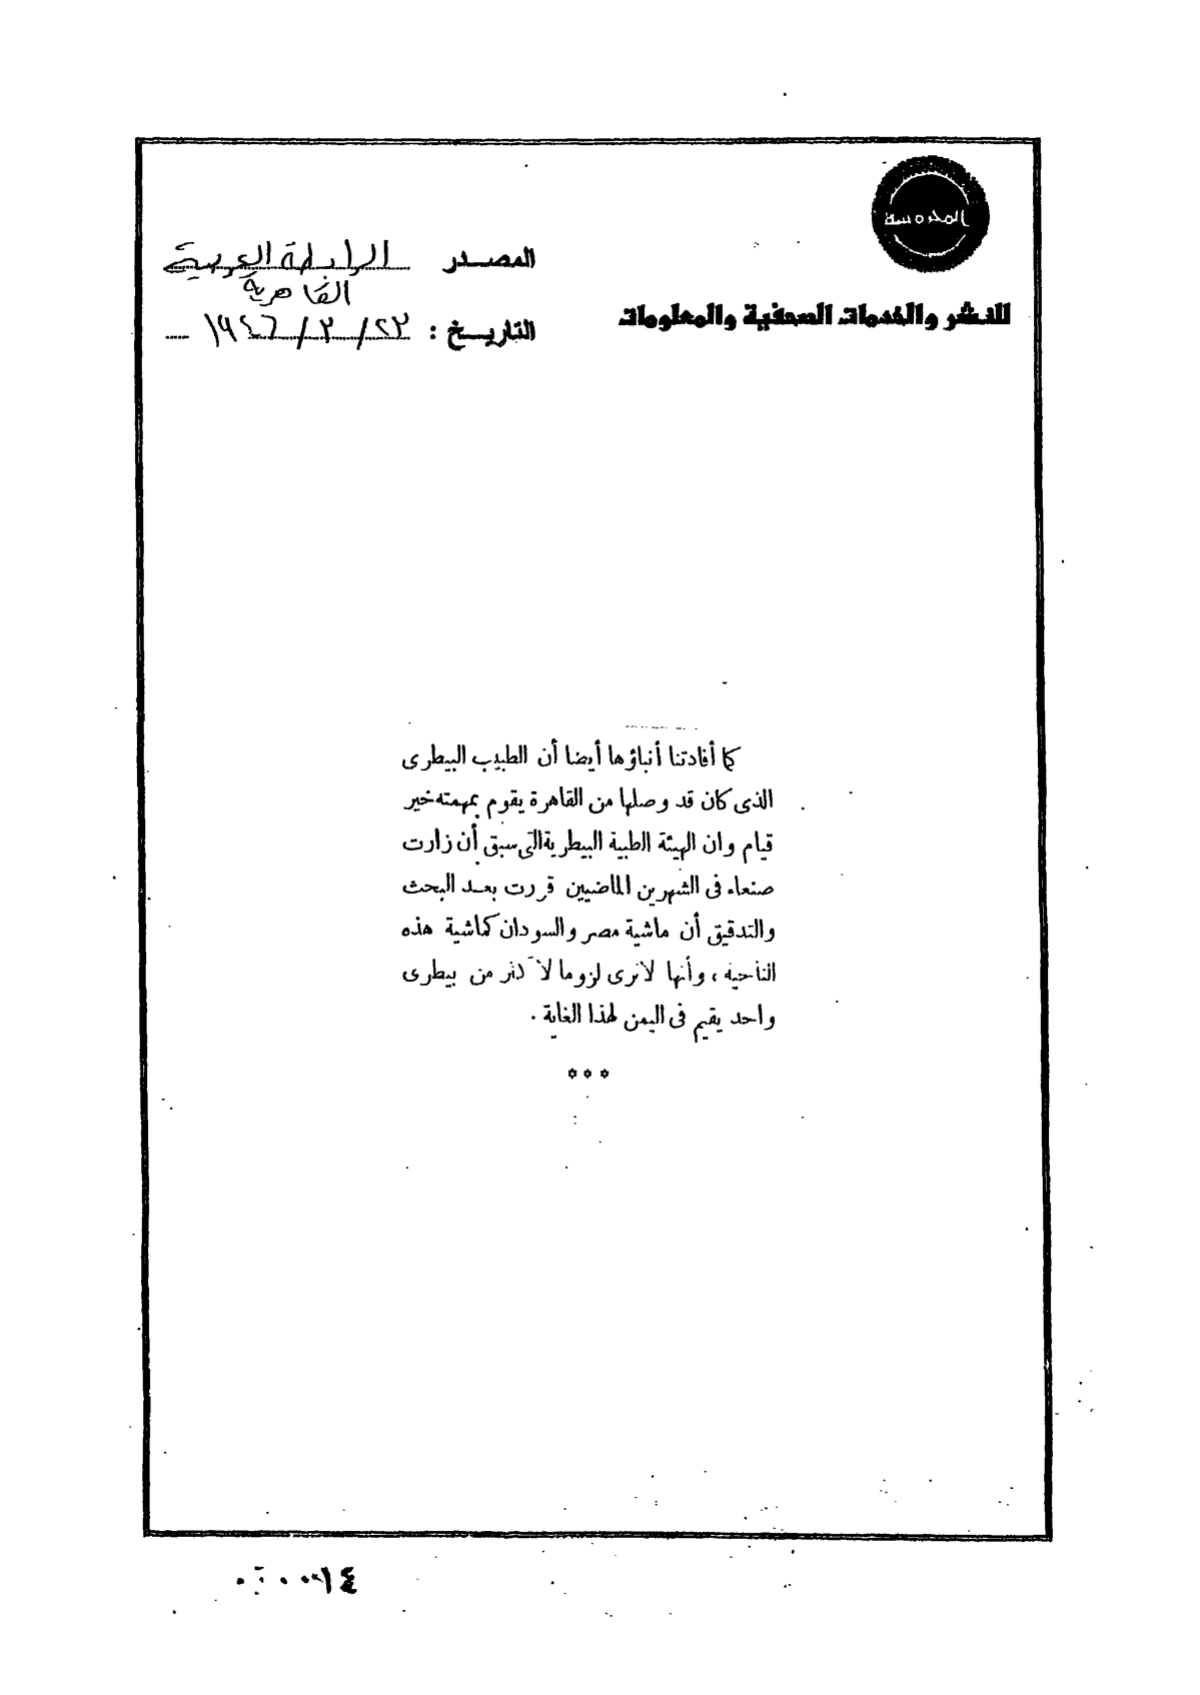 المحروسة
المصدر الرابطة العربية
القاهرية
للنشر والخدمات الصحفية والمعلومات
التاريخ : ٢٣/٢/١٩٤٦
كما أفادتنا أنباؤها أيضا أن الطبيب البيطرى
الذى كان قد وصلها من القاهرة يقوم بمهمته خير
قيام وان الهيئة الطبية البيطرية التى سبق أن زارت
صنعاء فى الشهرين الماضيين قررت بعد البحث
والتدقيق أن ماشية مصر والسودان كماشية هذه
الناحية ، وأنها لا نرى لزوما لأكثر من بيطرى
واحد يقيم فى اليمن لهذا الغاية .